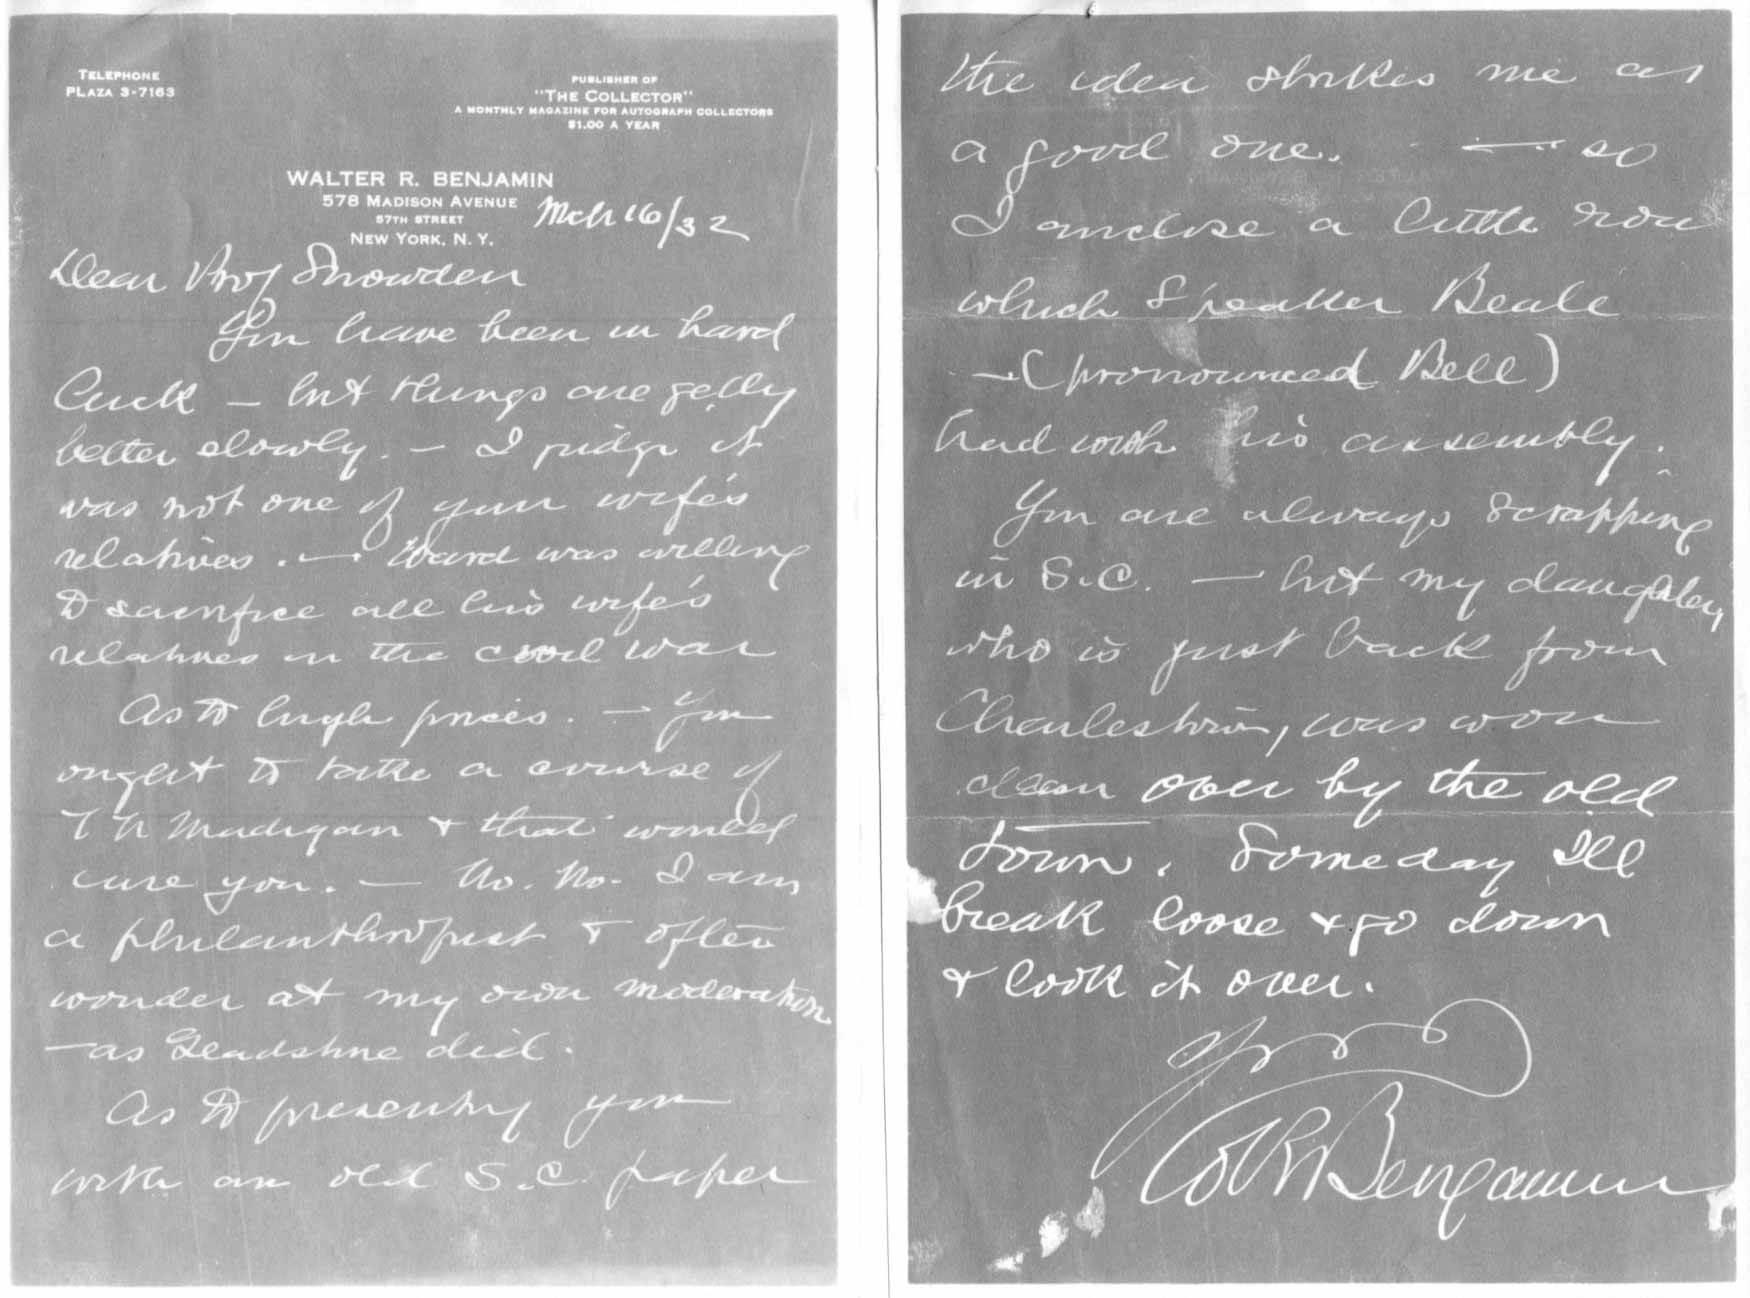 TELEPHONE
PLAZA 3-7163
PUBLISHER OF
"THE COLLECTOR"
A MONTHLY MAGAZINE FOR AUTOGRAPH COLLECTORS
$1.00 A YEAR
WALTER R. BENJAMIN
578 MADISON AVENUE
57TH STREET
NEW YORK, N. Y.
Mch 16/32
Dear Prof Snowden
You have been in hard
luck — but things are
better slowly. — I judge it
was not one of your wife's
relatives. — Ward was willing
to sacrifice all his wife's
relatives in the civil war
As to high prices. — You
ought to take a course of
T F Madigan & that would
cure you. — No. No. I am
a philanthropist & often
wonder at my own moderation
— as Gladstone did.
As to presenting you
with an old S.C. paper
the idea strikes me as
a good one. — so
I enclose a little row
which Speaker Beale
— (pronounced Bell)
had with his assembly.
You are always scrapping
in S.C. — but my daughter,
who is just back from
Charleston, was won
clean over by the old
town. Someday Ill
break loose & go down
& look it over.
Yrs
W R Benjamin